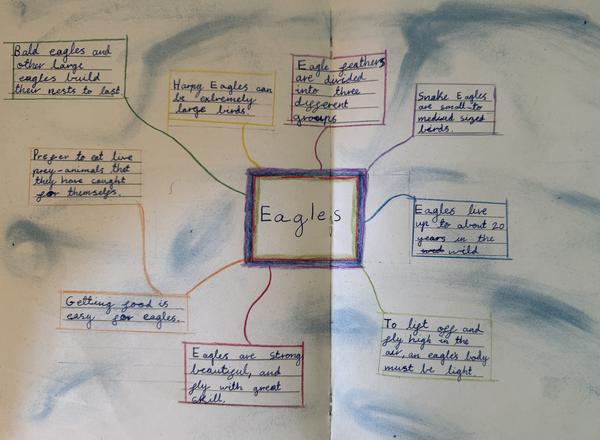 Bald eagles and
other large
eagles build
their nests to last
Harpy Eagles can
be extremely
large birds.
Eagle feathers
are divided
into three
different
groups
Snake Eagles
are small to
medium sized
birds.
Prefer to eat live
prey-animals that
they have caught
for themselves.
Eagles
Eagles live
up to about 20
years in the
wild
Getting food is
easy for eagles.
To lift off and
fly high in the
air, an eagles body
must be light.
Eagles are strong
beautiful, and
fly with great
skill.